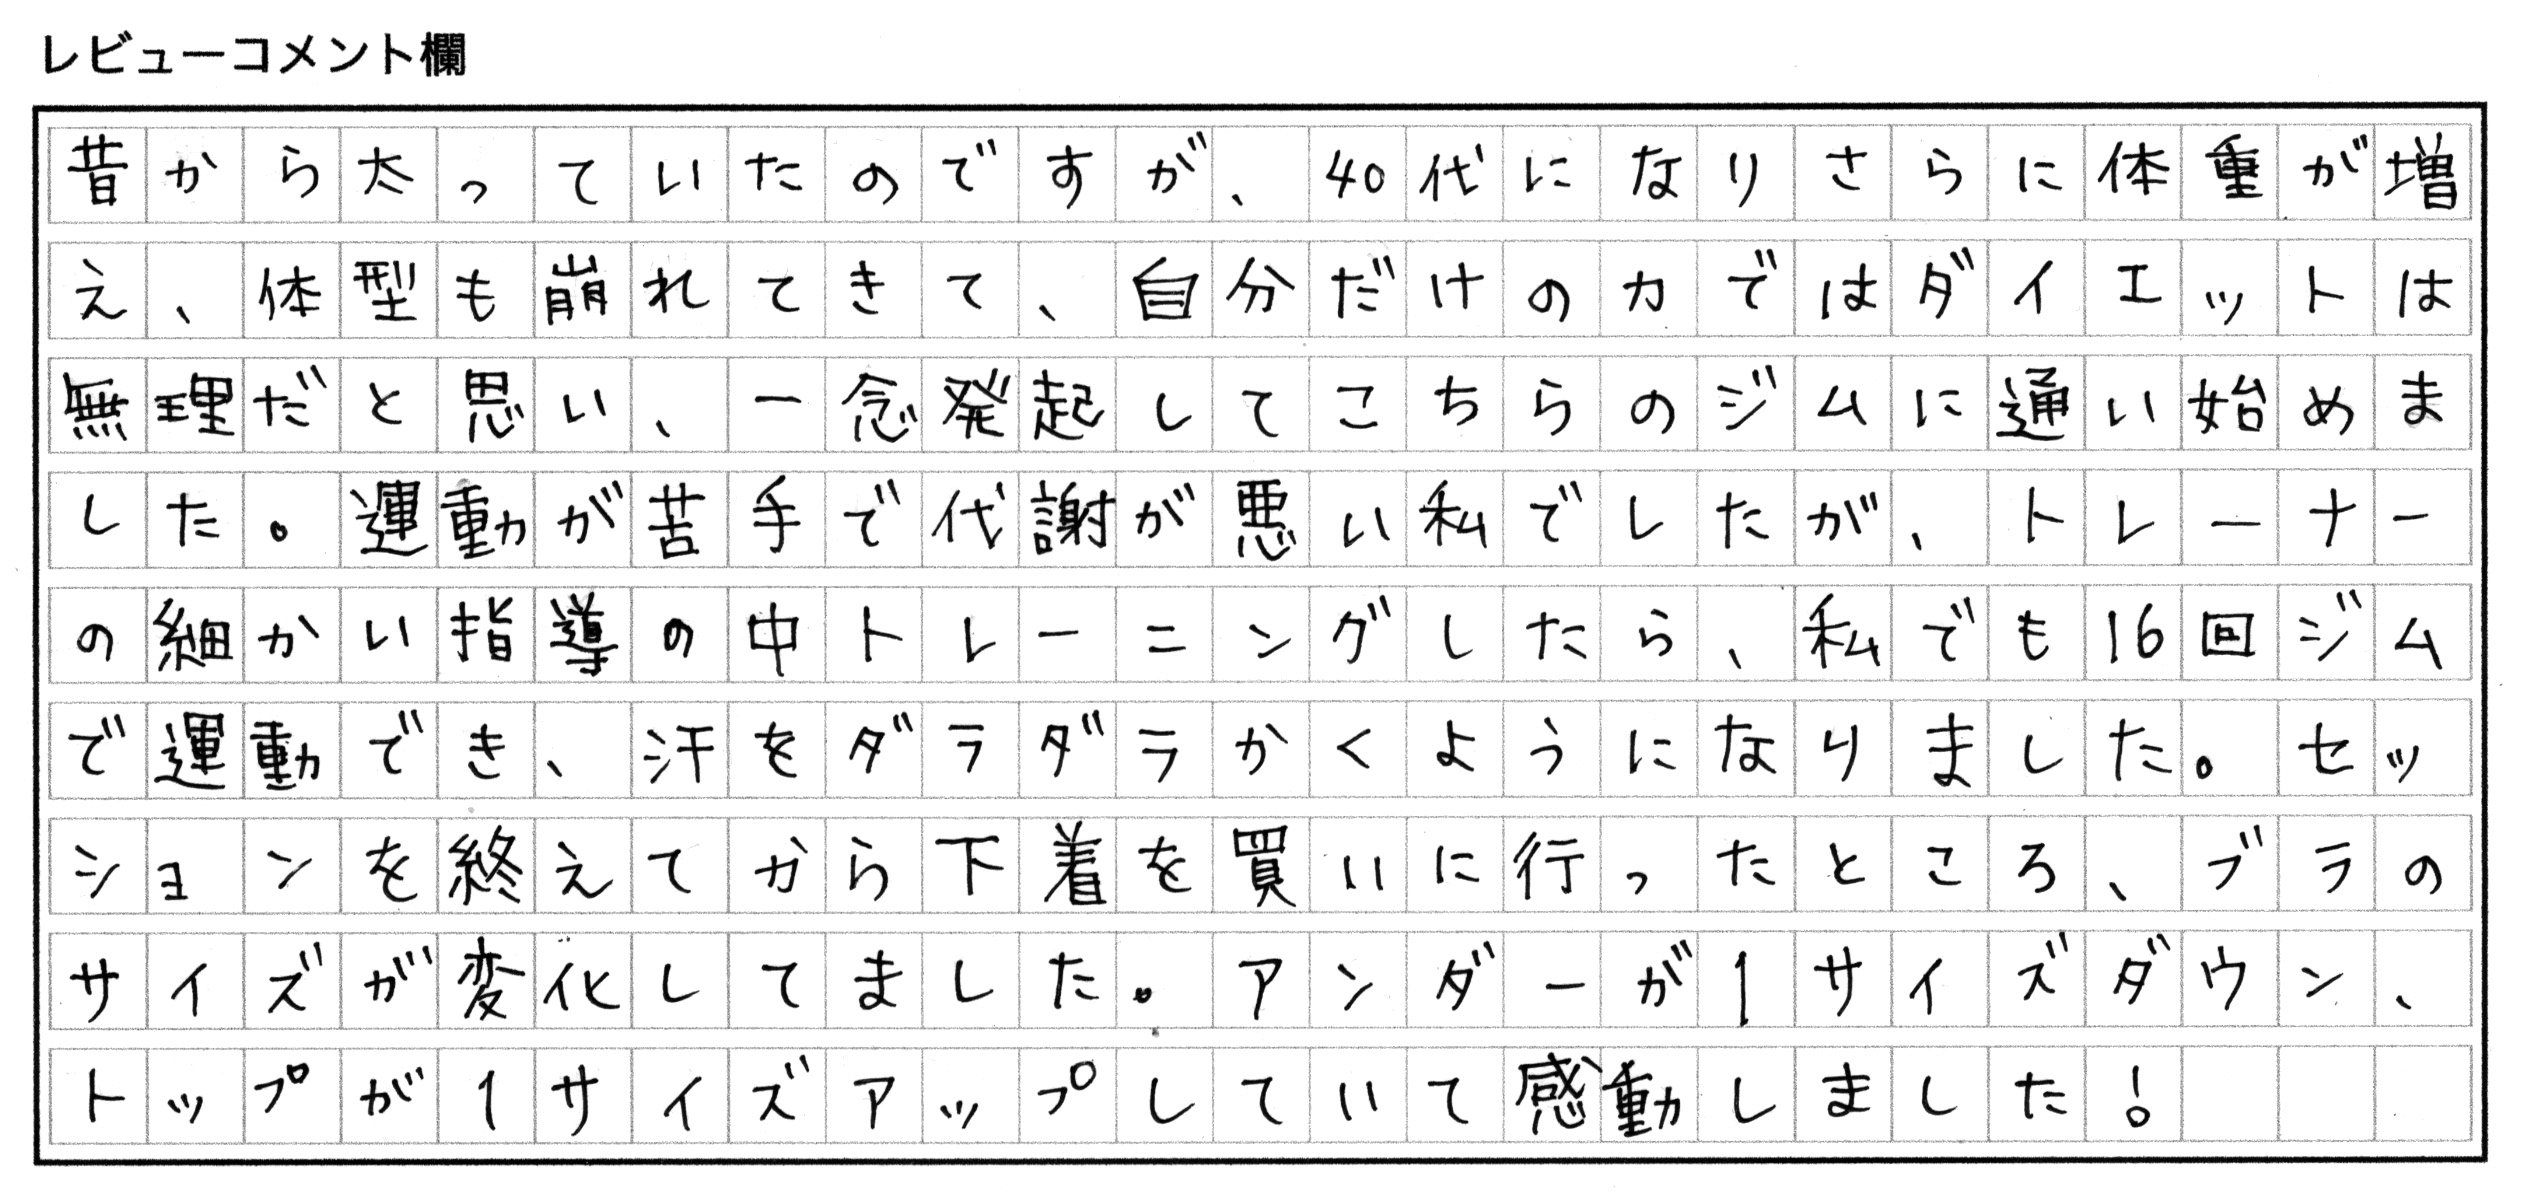 レビューコメント欄
昔から太っていたのですが、40代になりさらに体重が増
え、体型も崩れてきて、自分だけの力ではダイエットは
無理だと思い、一念発起してこちらのジムに通い始めま
した。運動が苦手で代謝が悪い私でしたが、トレーナー
の細かい指導の中トレーニングしたら、私でも16回ジム
で運動でき、汗をダラダラかくようになりました。セッ
ションを終えてから下着を買いに行ったところ、ブラの
サイズが変化してました。アンダーが1サイズダウン、
トップが1サイズアップしていて感動しました!